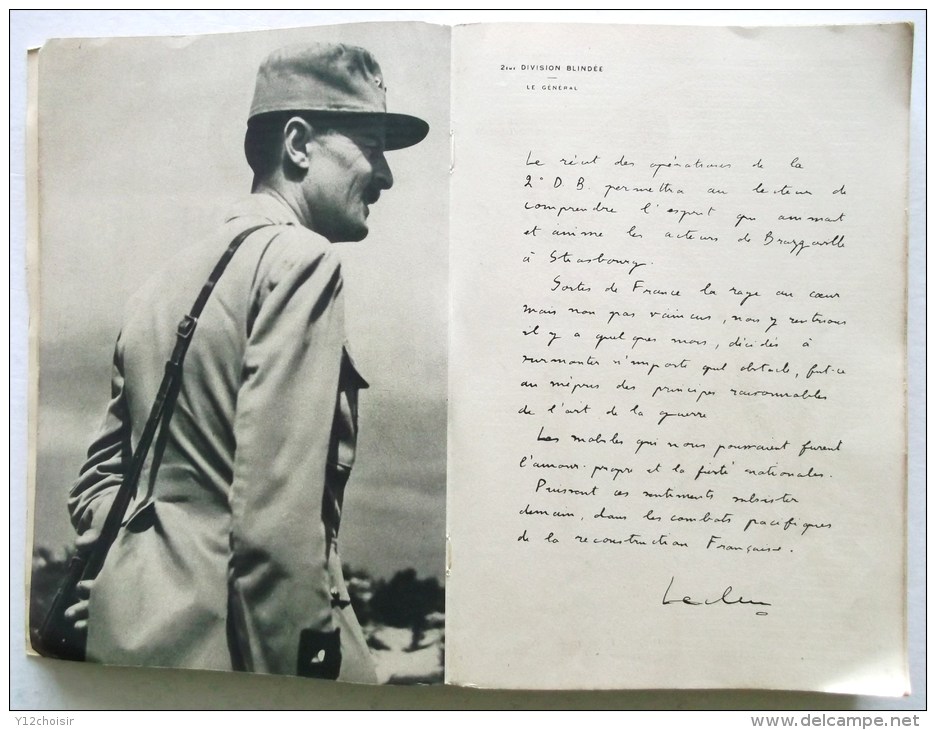 2ème DIVISION BLINDÉE
LE GÉNÉRAL
Le récit des opérations de la
2° D. B. permettra au lecteur de
comprendre l'esprit qui animait
et anime les acteurs de Brazzaville
à Strasbourg.
Sortis de France la rage au cœur
mais non pas vaincus, nous y rentrions
il y a quelques mois, décidés à
surmonter n'importe quel obstacle, fut-ce
au mépris des principes raisonnables
de l'art de la guerre
Les mobiles qui nous poussaient furent
l'amour-propre et la fierté nationales.
Puissent ces sentiments subsister
demain, dans les combats pacifiques
de la reconstruction Française.
Leclerc
Y12choisir
www.delcampe.net